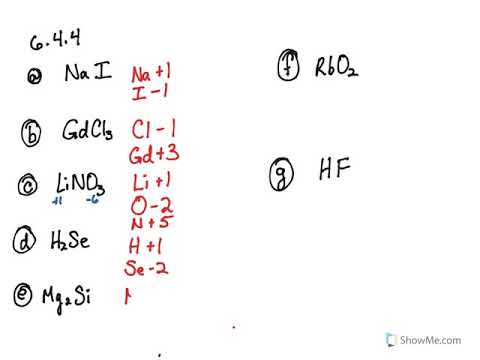 6.4.4
a NaI Na+1
I-1
b GdCl3 Cl-1
Gd+3
c LiNO3 Li+1
+1 -6 O-2
N+5
d H2Se H+1
Se-2
e Mg2Si
f RbO2
g HF
ShowMe.com